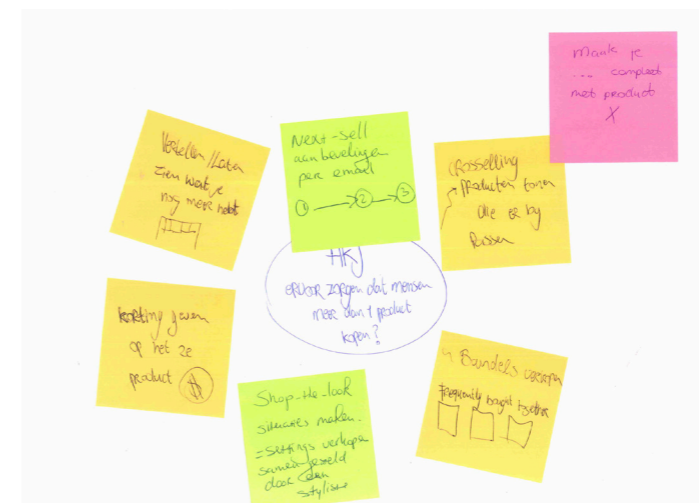 Maak je
... compleet
met product
X
Vertellen / laten
zien wat je
nog meer hebt
Next-sell
aanbevelingen
per email
1 2 3
Crosselling
producten tonen
die er bij
passen
HKJ
ervoor zorgen dat mensen
meer dan 1 product
kopen?
korting geven
op het 2e
product $
Shop-the-look
situaties maken.
= settings verkopen
samengesteld
door een
stylist
Bundels
Frequently bought together